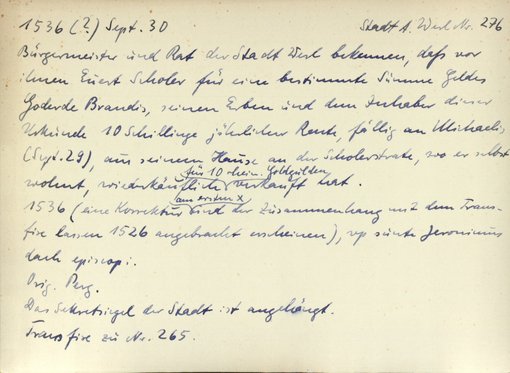 1536 (?) Sept. 30 Stadt A. Werl Nr. 276
Bürgermeister und Rat der Stadt Werl bekennen, daß vor
ihnen Evert Scholer für eine bestimmte Summe Geldes
Goderde Brandis, seinen Erben und dem Inhaber dieser
Urkunde 10 Schillinge jährlicher Rente, fällig an Michaelis
(Sept. 29), aus seinem Hause an der Scholerstrate, wo er selbst
für 10 rhein. Goldgulden
wohnt, wiederkäuflich verkauft hat.
am ersten X
1536 (eine Korrektur und der Zusammenhang mit dem Trans-
fixe lassen 1526 angebracht erscheinen), up sünte Jeronimus
dach episcopi.
Orig. Perg.
Das Sekretsiegel der Stadt ist angehängt.
Transfix zu Nr. 265.